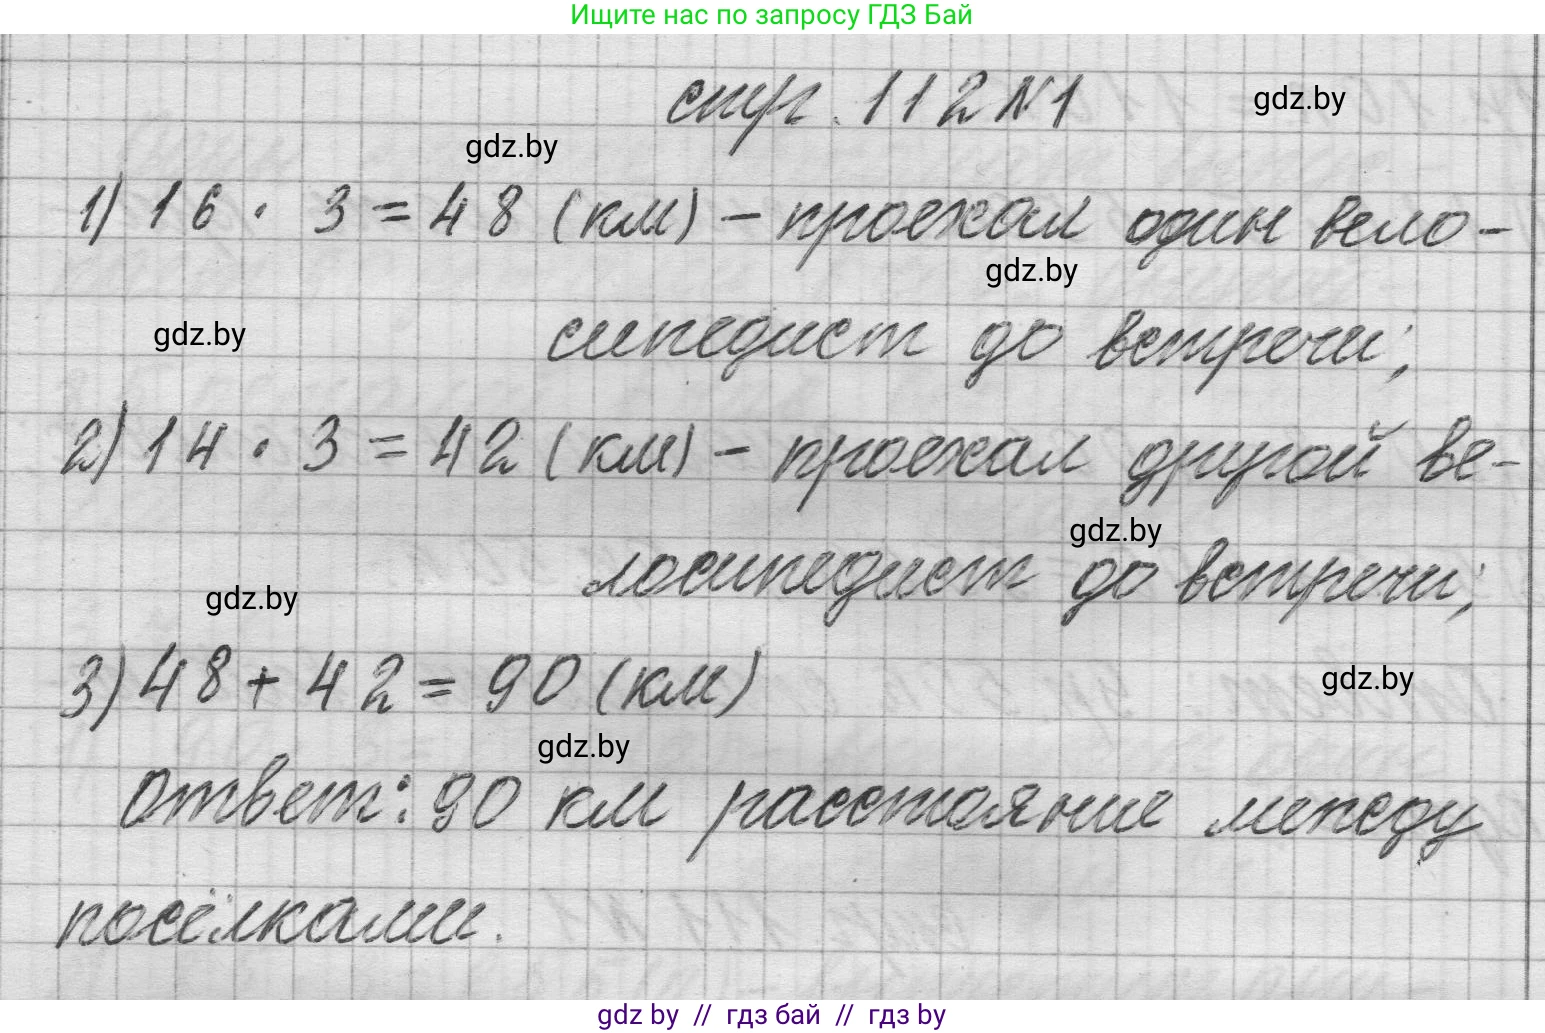 Ищите нас по запросу ГДЗ Бай
стр. 112 №1
gdz.by
gdz.by
1) 16 · 3 = 48 (км) – проехал один вело-
gdz.by
gdz.by
сипедист до встречи;
2) 14 · 3 = 42 (км) – проехал другой ве-
gdz.by
лосипедист до встречи;
gdz.by
3) 48 + 42 = 90 (км)
gdz.by
gdz.by
Ответ: 90 км расстояние между
посёлками.
gdz by // гдз бай // гдз by